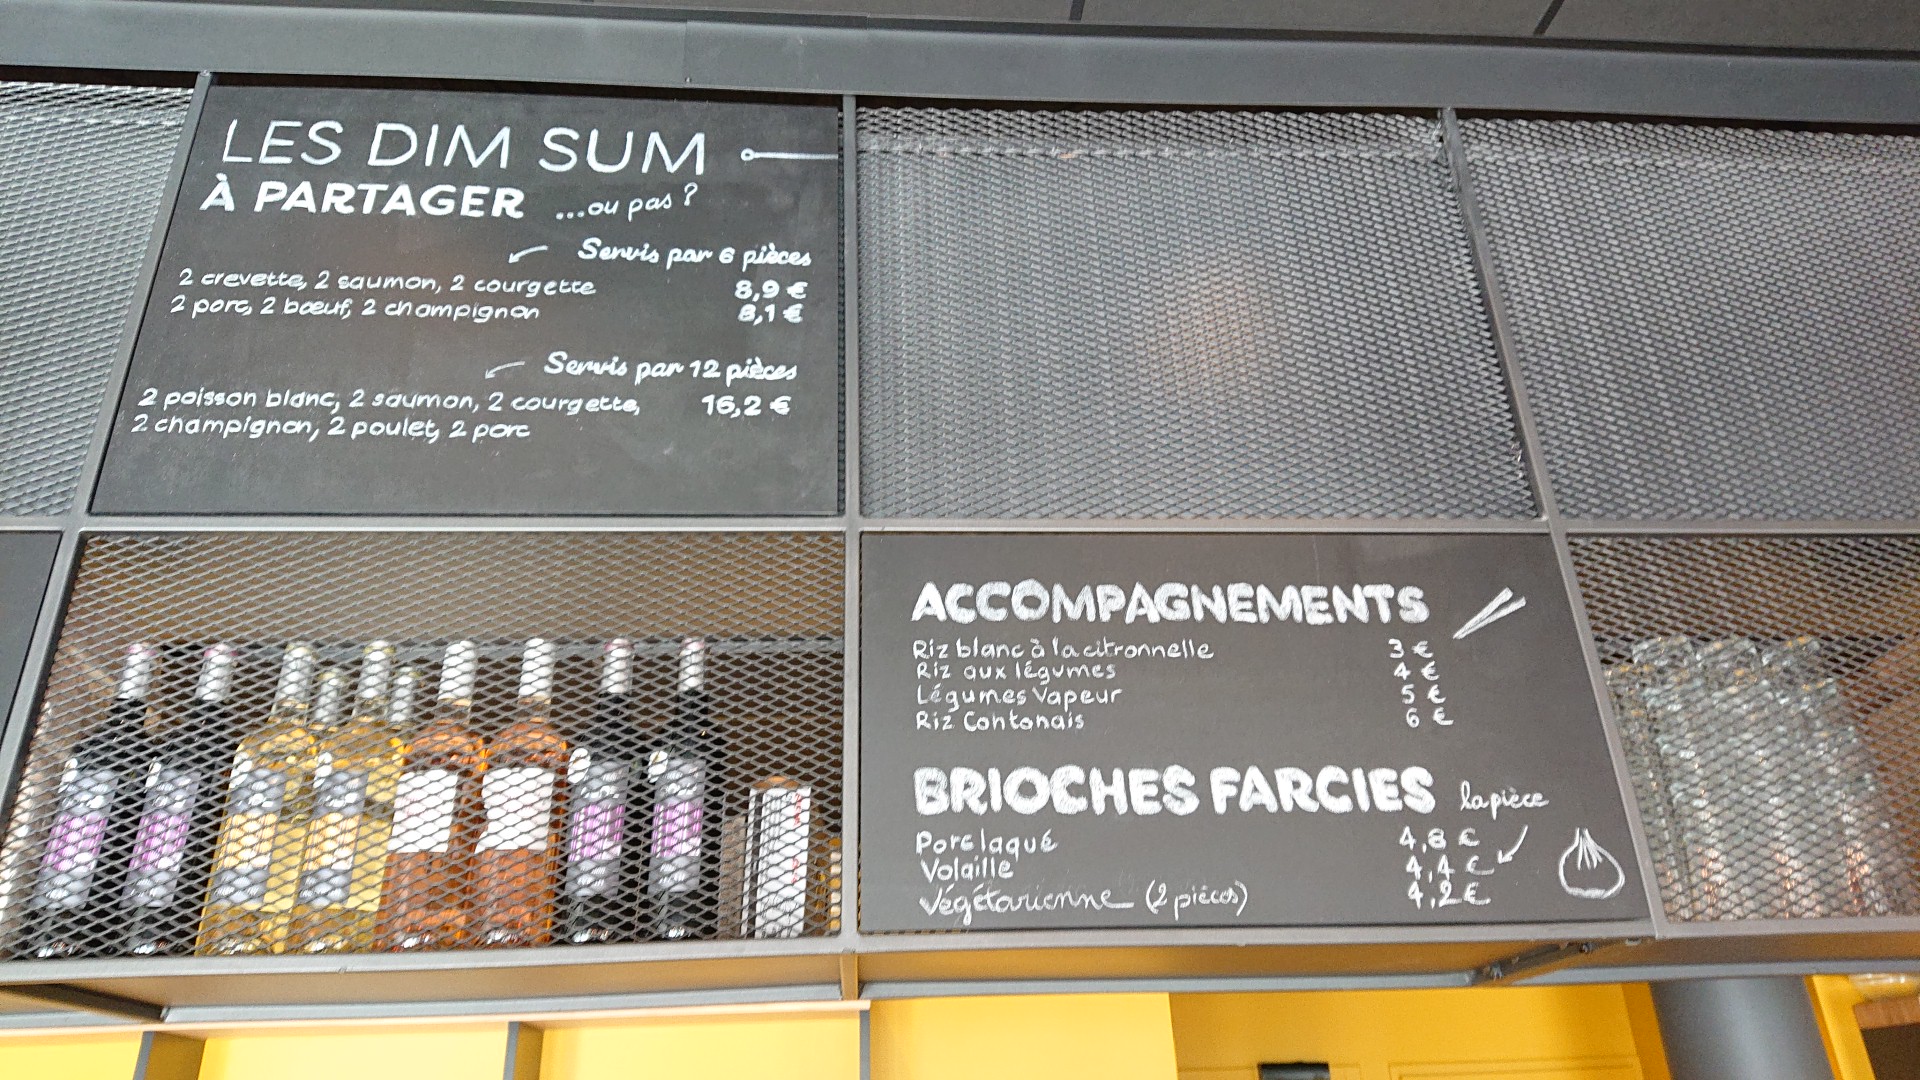 LES DIM SUM
À PARTAGER ...ou pas ?
Servis par 6 pièces
2 crevette, 2 saumon, 2 courgette 8,9 €
2 porc, 2 bœuf, 2 champignon 8,1 €
Servis par 12 pièces
2 poisson blanc, 2 saumon, 2 courgette, 16,2 €
2 champignon, 2 poulet, 2 porc
ACCOMPAGNEMENTS
Riz blanc à la citronnelle 3 €
Riz aux légumes 4 €
Légumes Vapeur 5 €
Riz Cantonais 6 €
BRIOCHES FARCIES la pièce
Porc laqué 4,8 €
Volaille 4,4 €
Végétarienne (2 pièces) 4,2 €